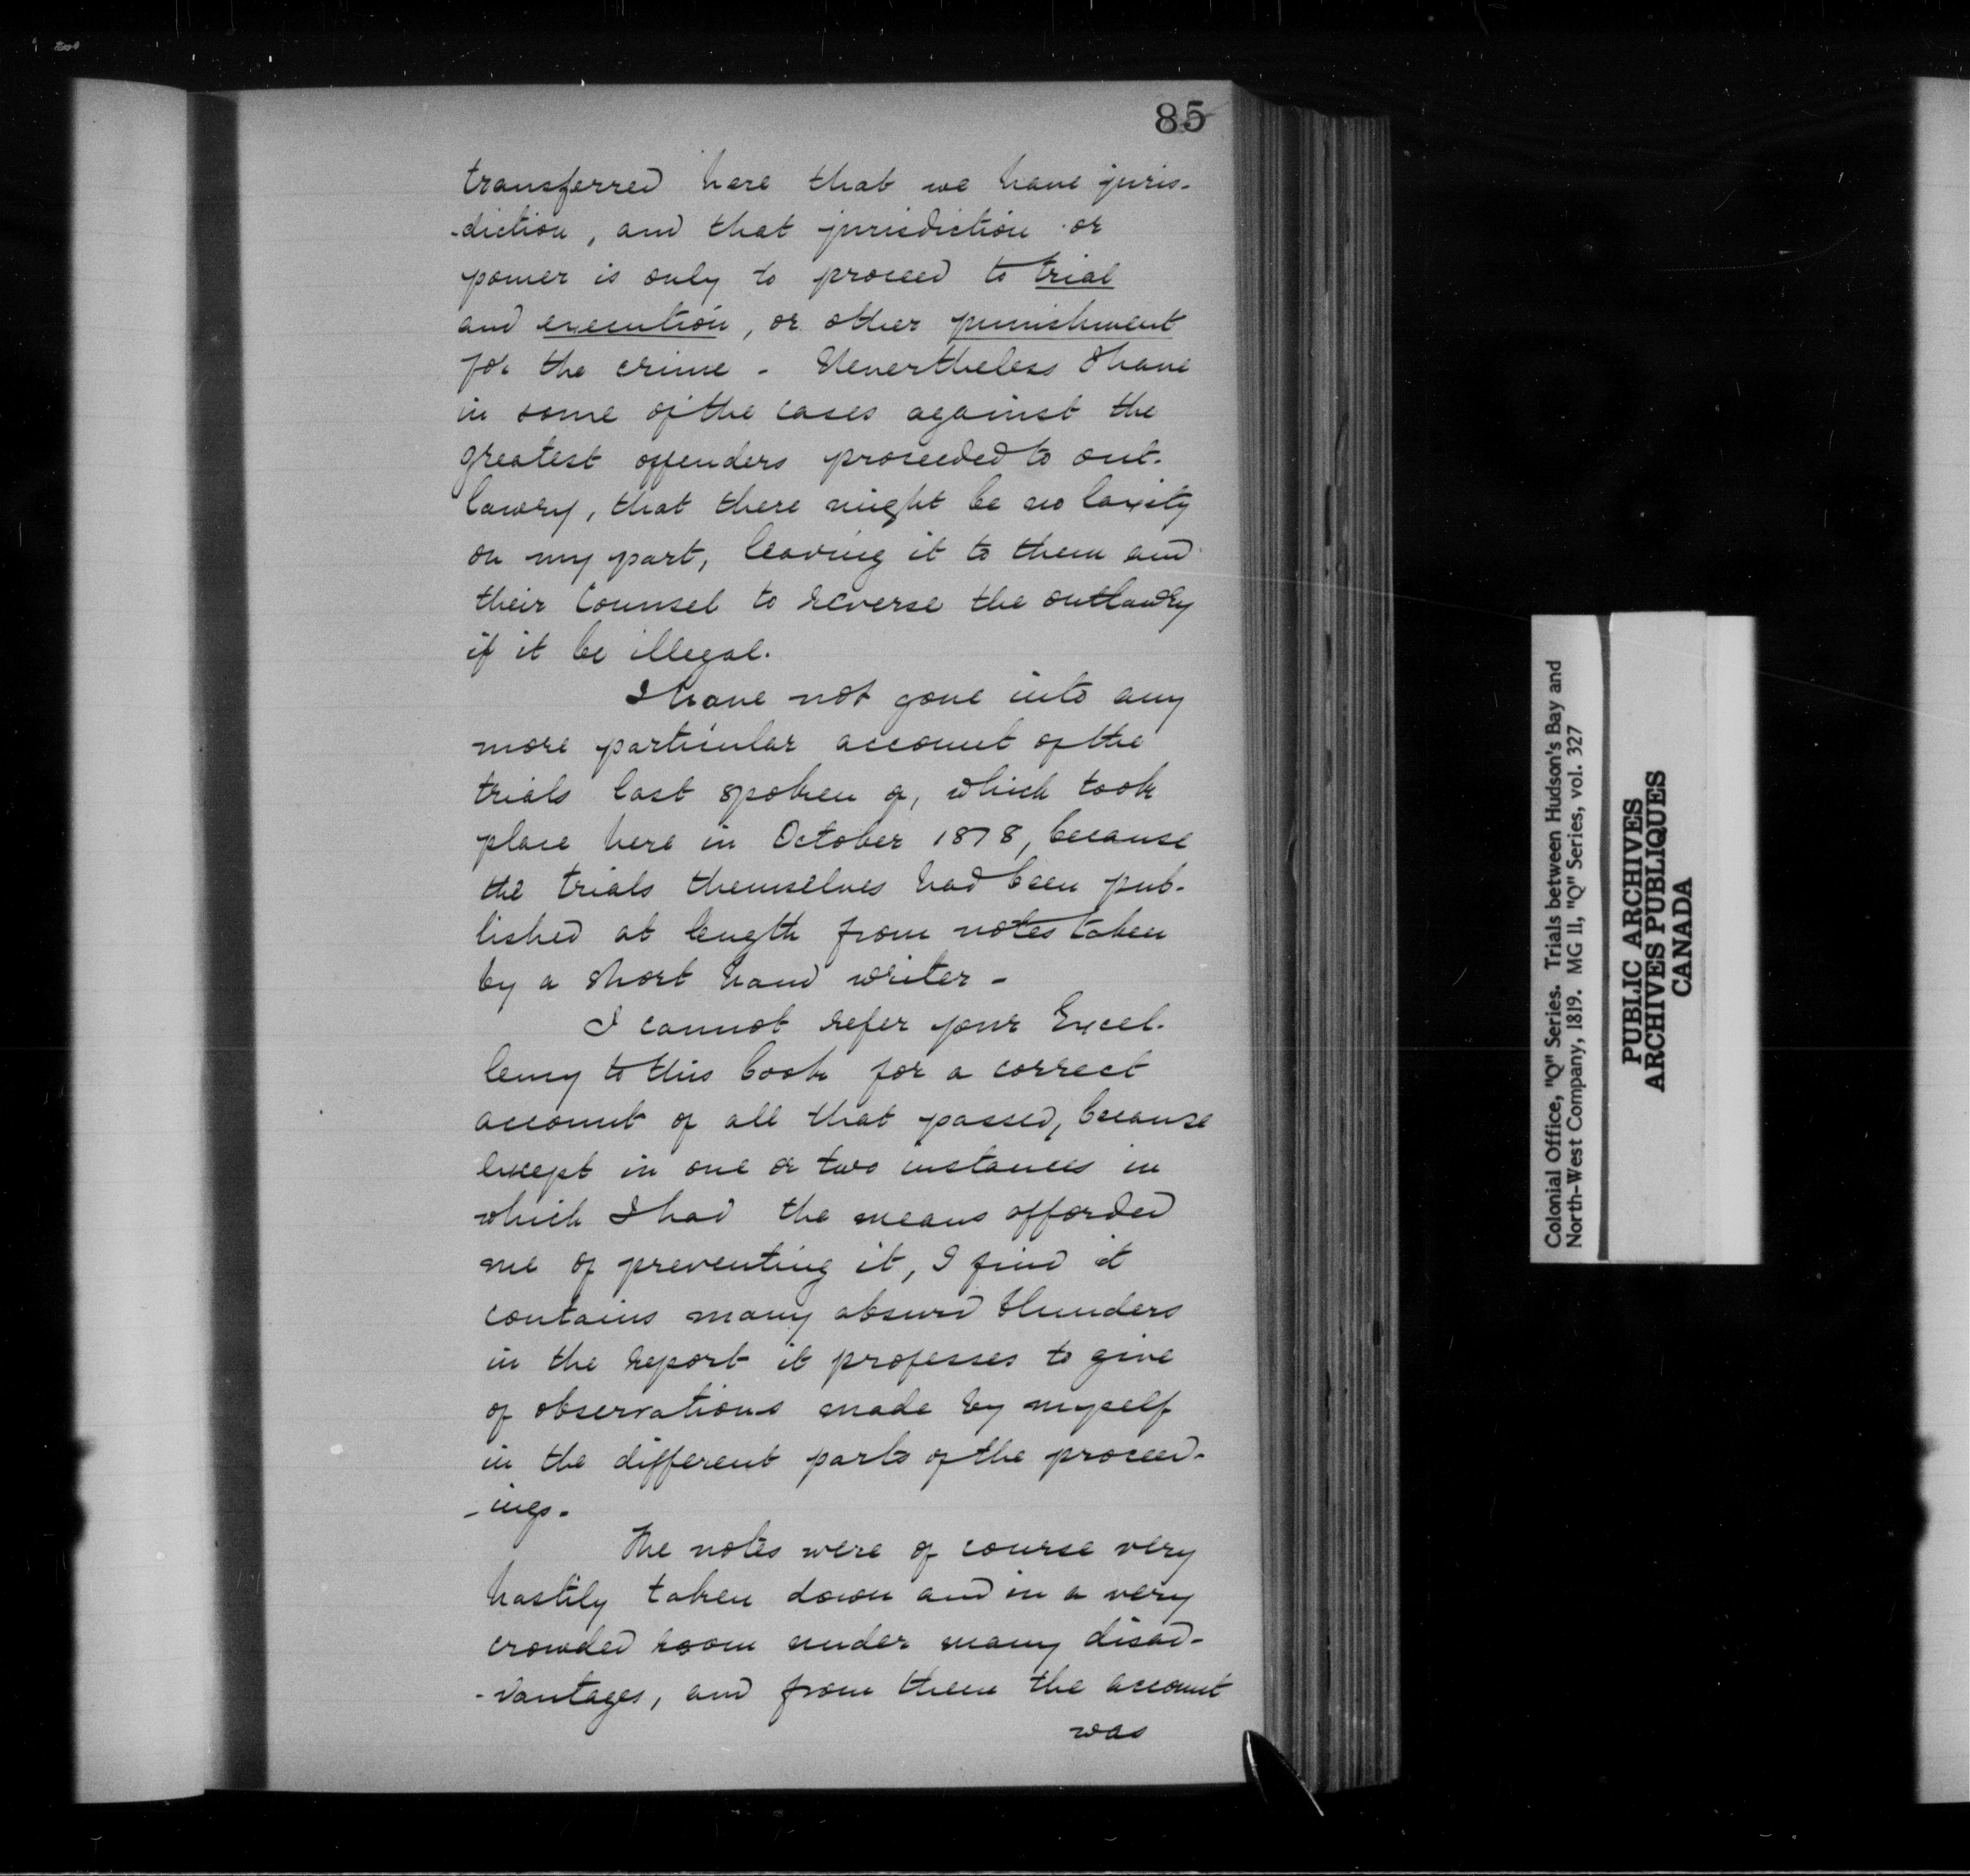 85
transferred here that we have juris-
-diction, and that jurisdiction or
power is only to proceed to trial
and execution, or other punishment
for the crime - Nevertheless I have
in some of the cases against the
greatest offenders proceeded to out-
lawry, that there might be no laxity
on my part, leaving it to them and
their Counsel to reverse the outlawry
if it be illegal.
I have not gone into any
more particular account of the
trials last spoken of, which took
place here in October 1878, because
the trials themselves had been pub-
lished at length from notes taken
by a short hand writer -
I cannot refer your Excel-
lency to this book for a correct
account of all that passed, because
except in one or two instances in
which I had the means afforded
me of preventing it, I find it
contains many absurd blunders
in the report it professes to give
of observations made by myself
in the different parts of the proceed-
-ings.
The notes were of course very
hastily taken down and in a very
crowded room under many disad-
-vantages, and from them the account
was
Colonial Office, "Q" Series. Trials between Hudson's Bay and
North-West Company, 1819. MG 11, "Q" Series, vol. 327
PUBLIC ARCHIVES
ARCHIVES PUBLIQUES
CANADA